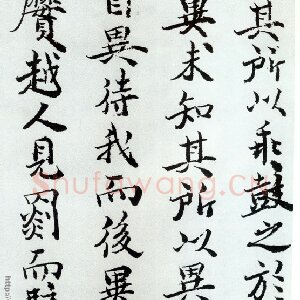 其所以乖鼓之於
異未知其所以異
自異待我而後異
黂越人見罽而駭
Shufawang.cn
http:/